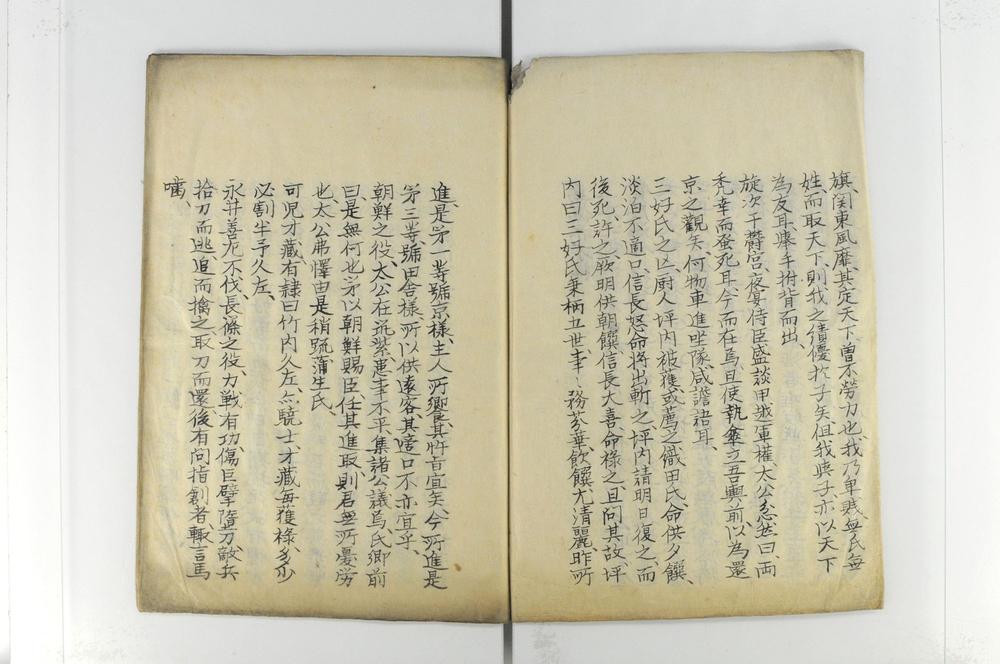 旗、関東風靡、其定天下、曽不勞力也、我乃卑賎無氏無
姓、而取天下、則我之績優於子矣、但我與子亦以天下
為友耳、瘻手拊背而出、
旋次于欝宮、夜宴侍臣、盛談甲越軍權、太公忿然曰、両
禿幸而蚤死耳、今而在焉、且使執傘立吾輿前、以為還
京之觀矣、何物車進坐隊、咸譫詰耳、
三好氏之亡、厨人坪内被獲、或薦之織田氏、命供夕饌、
淡泊不適口、信長怒、命將出斬之、坪内請明日復之、而
後死、許之、厥明供朝饌、信長大喜、命祿之、且問其故、坪
内曰、三好氏秉柄五世、事〻務芬華、飲饌尤清麗、昨所
進、是第一等、號京様、主人所饗、其忤旨宜矣、今所進、是
第三等、號田舎様、所以供遠客、其啻口不亦宜乎、
朝鮮之役、太公在筑紫、患事不平、集諸公議焉、氏卿前
曰、是無何也、第以朝鮮賜臣、任其進取、則君無所憂労
也、太公弗懌、由是稍疏蒲生氏、
可児才藏有隷、曰竹内久左、亦驍士、才藏每獲祿多少、
必割半予久左、
永井善左不伐、長湫之役、力戦有功、傷巨擘墮刀、敵兵
拾刀而逃、追而擒之、取刀而還、後有問指創者、輙言馬
嚙、